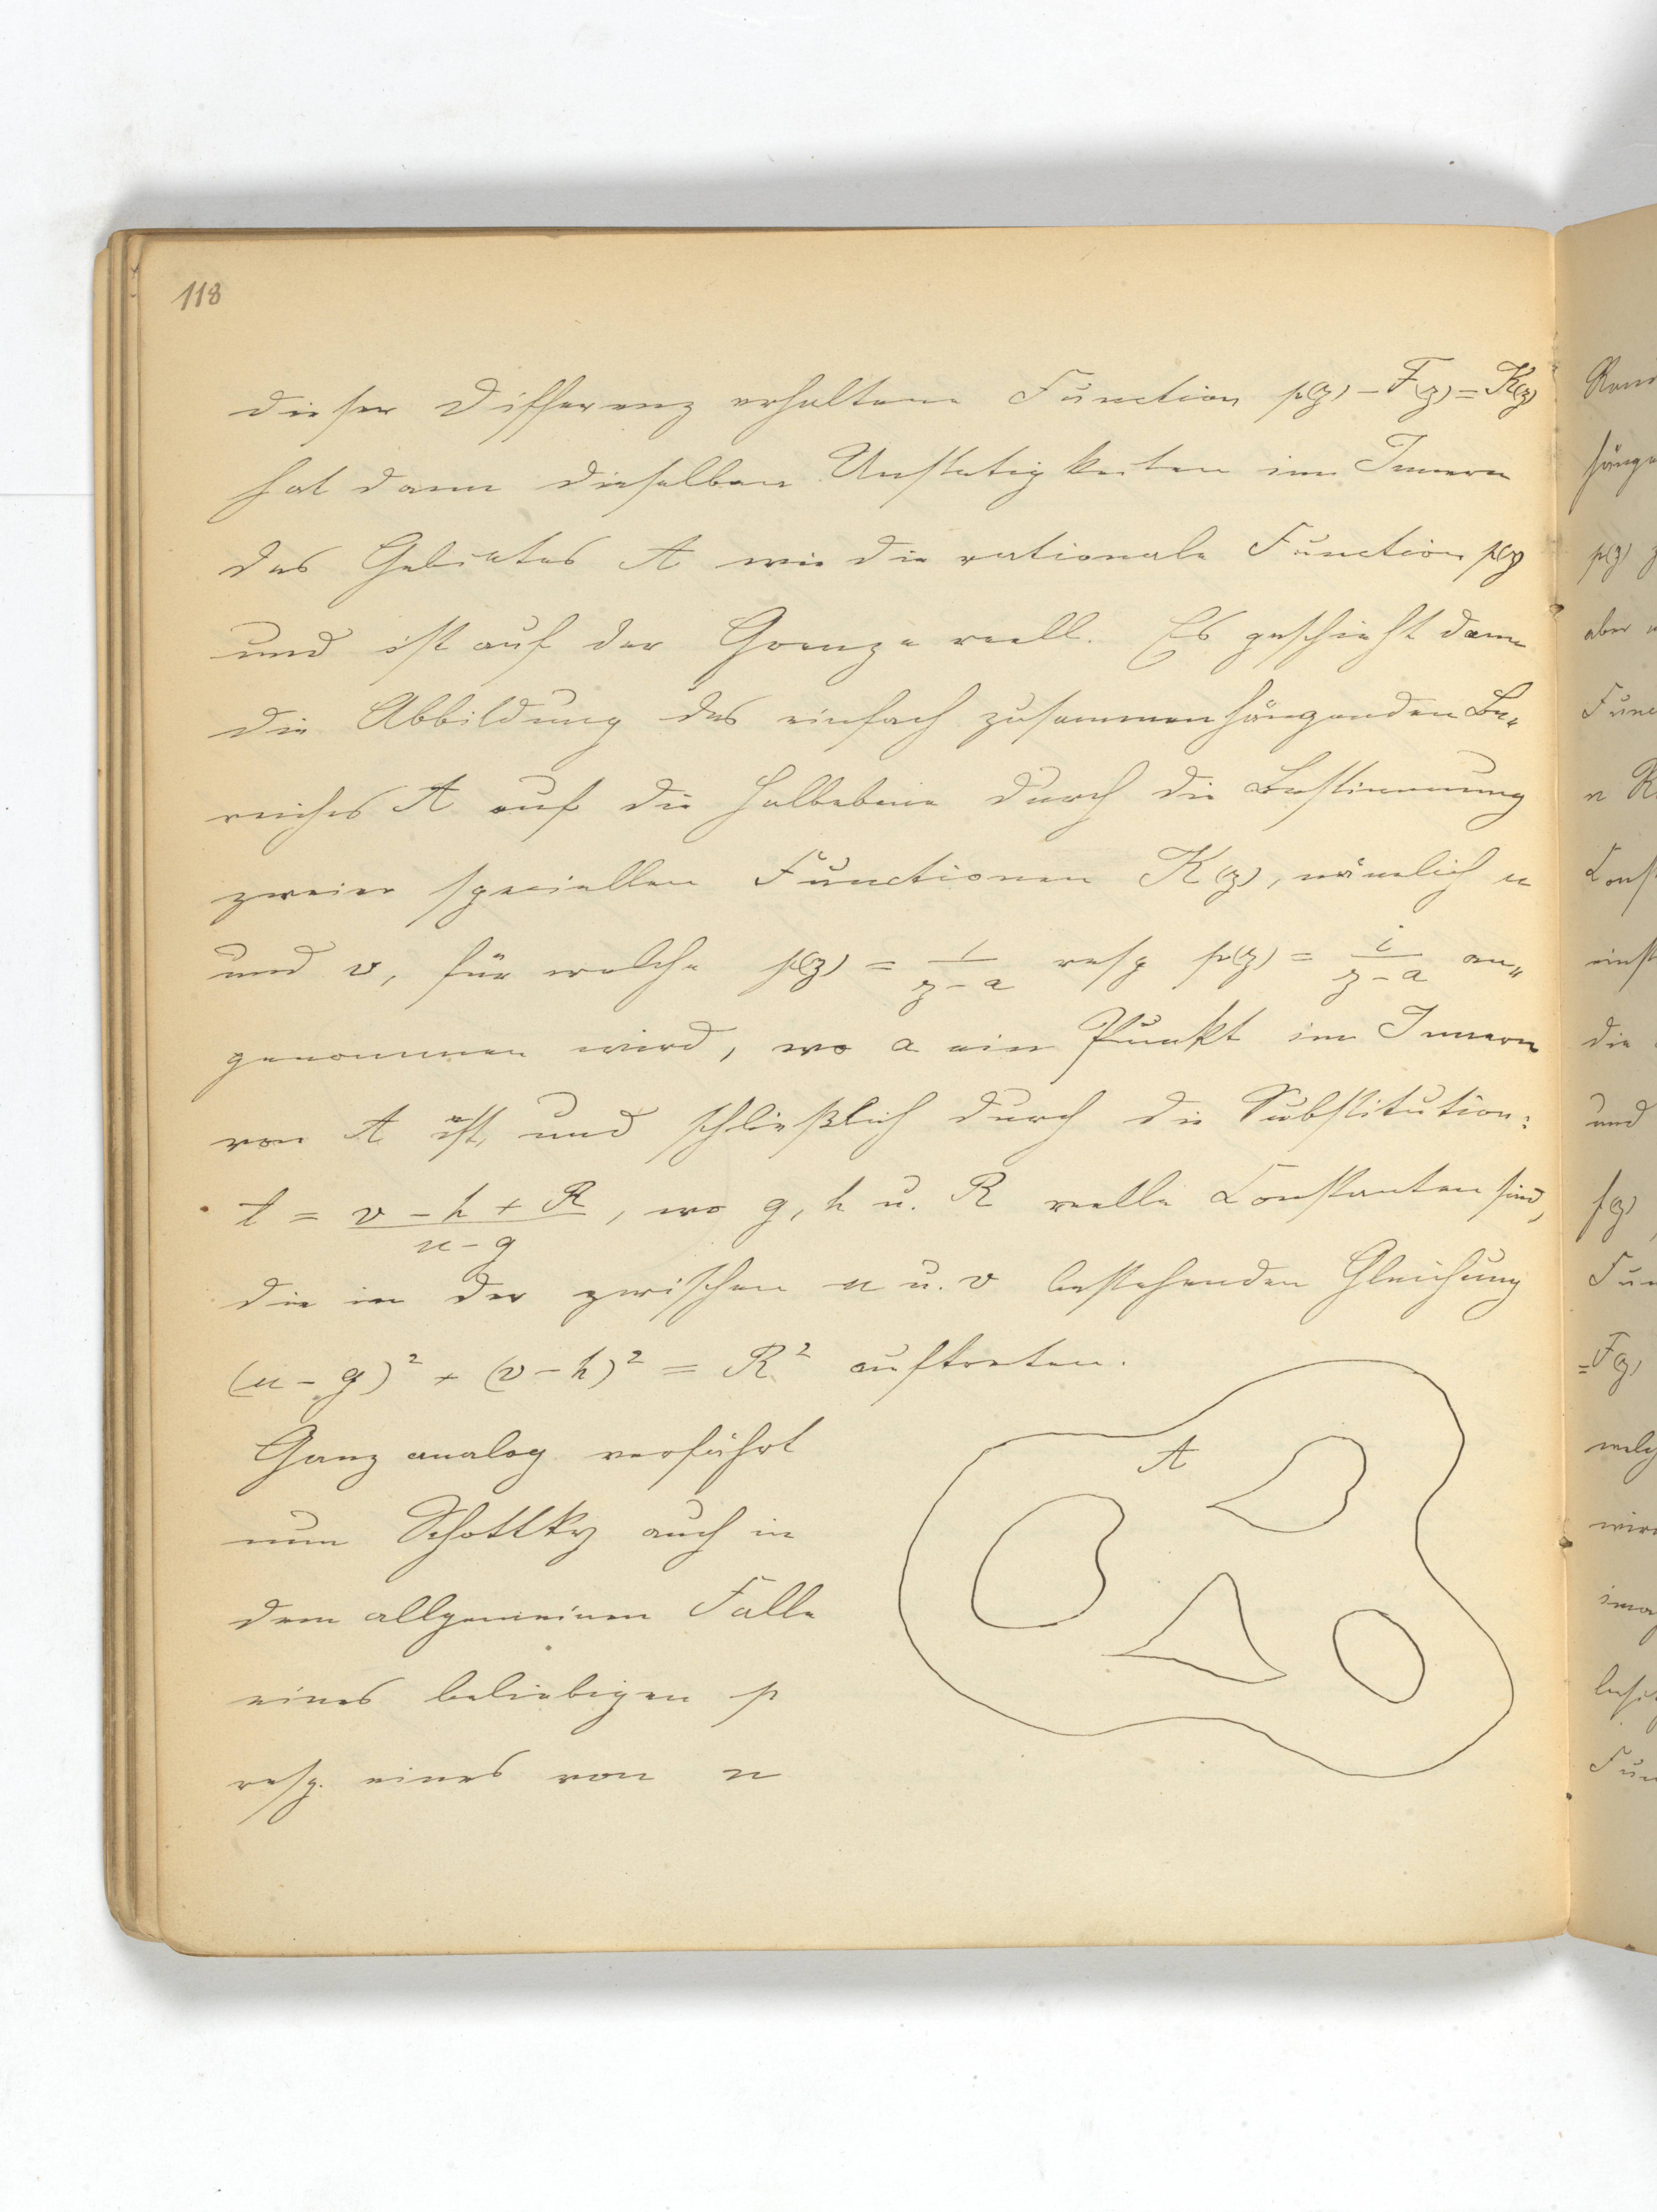 118
dieser Differenz erhaltene Function p(z) – F(z) = K(z)
hat dann dieselben Unstetigkeiten im Innern
des Gebietes A wie die rationale Function p(z)
und ist auf der Grenze reell. Es geschieht dann
die Abbildung des einfach zusammenhängenden Be„
reiches A auf die Halbebene durch die Bestimmung
zweier speciellen Functionen K(z), nämlich u
und v, für welche p(z) = 1/(z – a) resp p(z) = i/(z – a) an„
genommen wird, wo a ein Punkt im Innern
von A ist, und schließlich durch die Substitution:
t = (v – h + R)/(u – g), wo g, h u. R reelle Constanten sind,
die in der zwischen u u. v bestehenden Gleichung
(u – g)² + (v – h)² = R² auftreten.
Ganz analog verfährt
nun Schottky auch in
dem allgemeinen Falle
eines beliebigen p
resp. eines von n
A